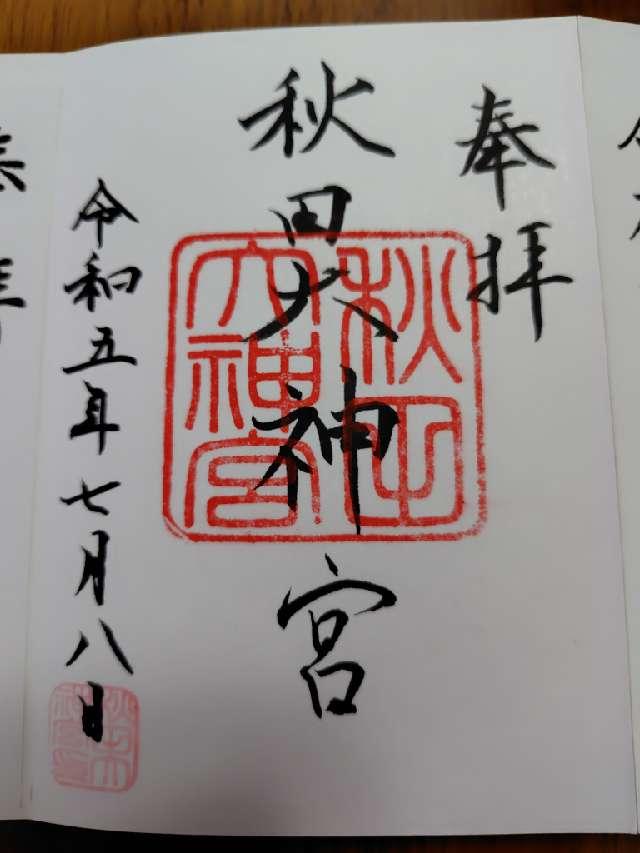 奉拝
秋田大神宮
秋田
大神宮
令和五年七月八日